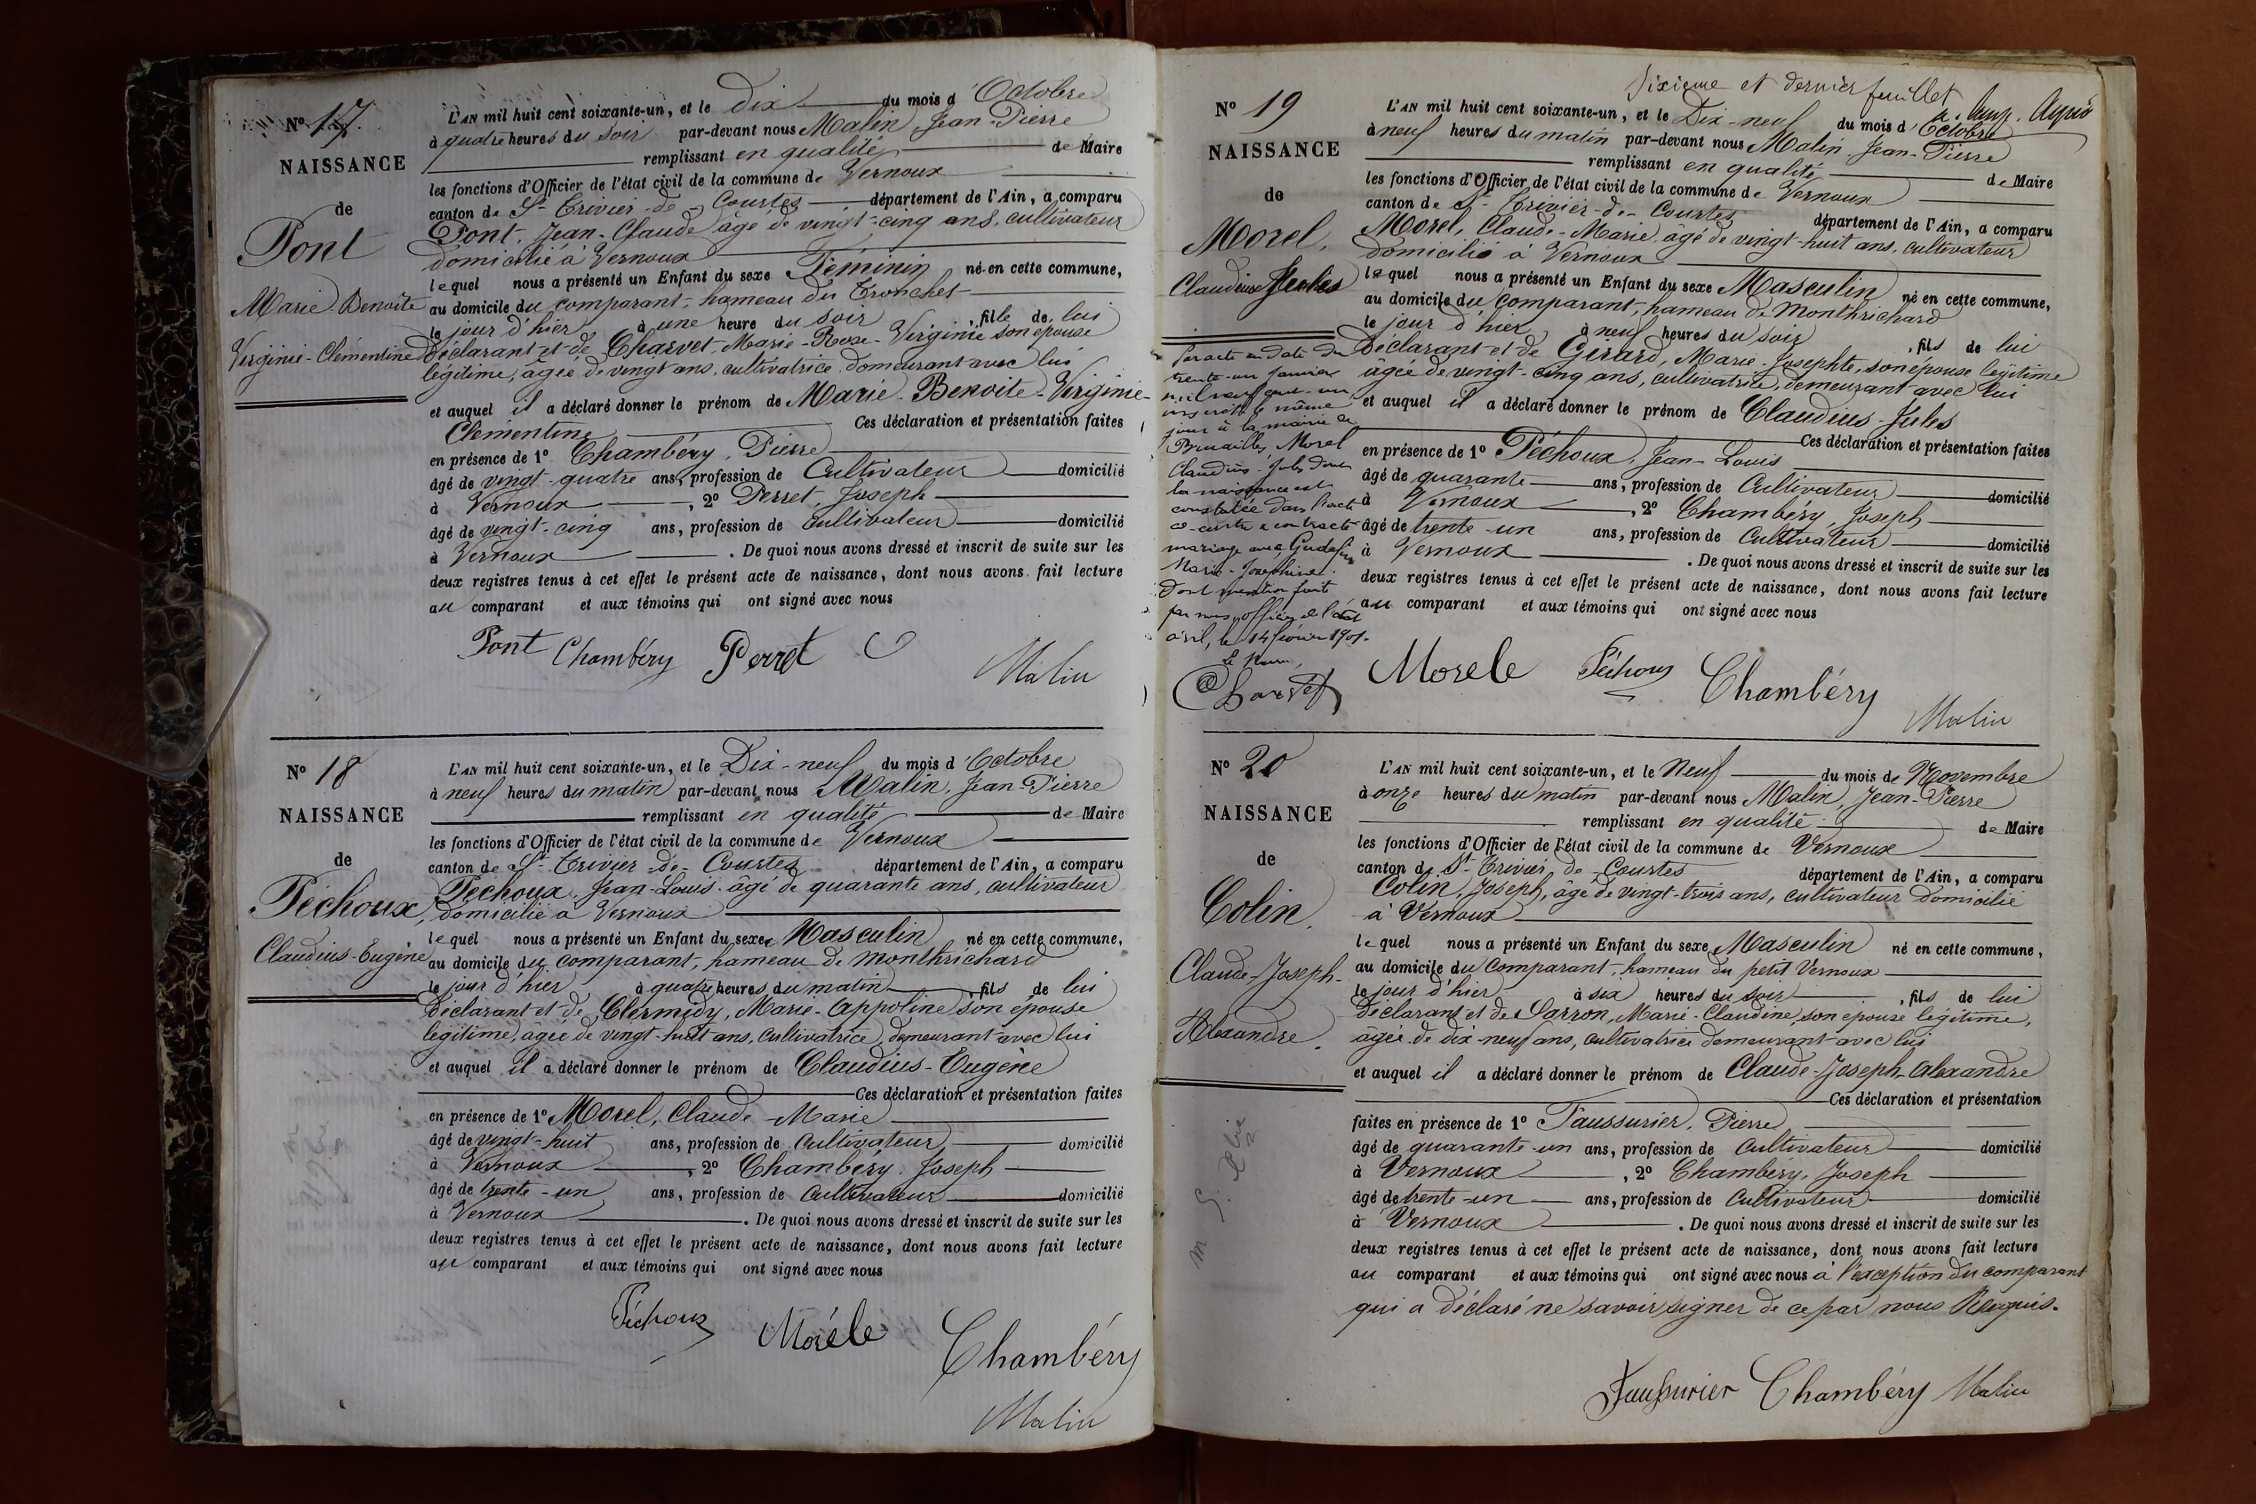 N° 17
NAISSANCE
de
Pont
Marie Benoite
Virginie-Clémentine
L'AN mil huit cent soixante-un, et le Dix du mois d'Octobre
à quatre heures du soir par-devant nous Malin, Jean-Pierre
remplissant en qualité de Maire
les fonctions d'Officier de l'état civil de la commune de Vernoux
canton de St Trivier-de-Courtes département de l'Ain, a comparu
Pont, Jean-Claude âgé de vingt-cinq ans, cultivateur
domicilié à Vernoux
lequel nous a présenté un Enfant du sexe Féminin né en cette commune,
au domicile du comparant, hameau du Tronchet
le jour d'hier à une heure du soir, fille de lui
Déclarant et de Charvet, Marie-Rose-Virginie son épouse
légitime, âgée de vingt ans, cultivatrice, demeurant avec lui
et auquel il a déclaré donner le prénom de Marie-Benoite-Virginie-
Clémentine Ces déclaration et présentation faites
en présence de 1° Chambéry, Pierre
âgé de vingt-quatre ans, profession de Cultivateur domicilié
à Vernoux, 2° Perret, Joseph
âgé de vingt-cinq ans, profession de Cultivateur domicilié
à Vernoux. De quoi nous avons dressé et inscrit de suite sur les
deux registres tenus à cet effet le présent acte de naissance, dont nous avons fait lecture
au comparant et aux témoins qui ont signé avec nous
Pont Chambéry Perret
Malin
N° 18
NAISSANCE
de
Péchoux,
Claudius-Eugène
L'AN mil huit cent soixante-un, et le Dix-neuf du mois d'Octobre
à neuf heures du matin par-devant nous Malin, Jean-Pierre
remplissant en qualité de Maire
les fonctions d'Officier de l'état civil de la commune de Vernoux
canton de St Trivier-de-Courtes département de l'Ain, a comparu
Péchoux, Jean-Louis âgé de quarante ans, cultivateur
domicilié à Vernoux
lequel nous a présenté un Enfant du sexe Masculin né en cette commune,
au domicile du comparant, hameau de Monthrichard
le jour d'hier à quatre heures du matin, fils de lui
Déclarant et de Clermidy, Marie-Appoline son épouse
légitime, âgée de vingt-huit ans, cultivatrice, demeurant avec lui
et auquel il a déclaré donner le prénom de Claudius-Eugène
Ces déclaration et présentation faites
en présence de 1° Morel, Claude-Marie
âgé de vingt-huit ans, profession de Cultivateur domicilié
à Vernoux, 2° Chambéry, Joseph
âgé de trente-un ans, profession de Cultivateur domicilié
à Vernoux. De quoi nous avons dressé et inscrit de suite sur les
deux registres tenus à cet effet le présent acte de naissance, dont nous avons fait lecture
au comparant et aux témoins qui ont signé avec nous
Péchoux Moréle Chambéry
Malin
Sixième et dernier feuillet
N° 19
NAISSANCE
de
Morel,
Claudius Jules
Par acte en date du
trente-un janvier
mil neuf cent un
inscrit le même
jour à la mairie de
Bruailles, Morel
Claudius-Jules dont
la naissance est
constatée dans l'acte
ci-contre a contracté
mariage avec
Marie-Joséphine.
Dont mention faite
par nous, officier de l'état
civil, le 14 février 1901.
Le Maire,
L'AN mil huit cent soixante-un, et le Dix-neuf du mois d'Octobre
à neuf heures du matin par-devant nous Malin, Jean-Pierre
remplissant en qualité de Maire
les fonctions d'Officier de l'état civil de la commune de Vernoux
canton de St Trivier-de-Courtes département de l'Ain, a comparu
Morel, Claude-Marie, âgé de vingt-huit ans, cultivateur
domicilié à Vernoux
lequel nous a présenté un Enfant du sexe Masculin né en cette commune,
au domicile du comparant, hameau de Monthrichard
le jour d'hier à neuf heures du soir, fils de lui
Déclarant et de Girard, Marie-Josephte, son épouse légitime
âgée de vingt-cinq ans, cultivatrice, demeurant avec lui
et auquel il a déclaré donner le prénom de Claudius-Jules
Ces déclaration et présentation faites
en présence de 1° Péchoux, Jean-Louis
âgé de quarante ans, profession de Cultivateur domicilié
à Vernoux, 2° Chambéry, Joseph
âgé de trente-un ans, profession de Cultivateur domicilié
à Vernoux. De quoi nous avons dressé et inscrit de suite sur les
deux registres tenus à cet effet le présent acte de naissance, dont nous avons fait lecture
au comparant et aux témoins qui ont signé avec nous
Morele Péchoux Chambéry
Malin
N° 20
NAISSANCE
de
Colin,
Claude-Joseph-
Alexandre.
L'AN mil huit cent soixante-un, et le Neuf du mois de Novembre
à onze heures du matin par-devant nous Malin, Jean-Pierre
remplissant en qualité de Maire
les fonctions d'Officier de l'état civil de la commune de Vernoux
canton de St Trivier de Courtes département de l'Ain, a comparu
Colin, Joseph, âgé de vingt-trois ans, cultivateur domicilié
à Vernoux
lequel nous a présenté un Enfant du sexe Masculin né en cette commune,
au domicile du comparant, hameau du petit Vernoux
le jour d'hier à six heures du soir, fils de lui
Déclarant et de Sarron, Marie-Claudine, son épouse légitime,
âgée de dix-neuf ans, cultivatrice demeurant avec lui
et auquel il a déclaré donner le prénom de Claude-Joseph-Alexandre
Ces déclaration et présentation
faites en présence de 1° Faussurier, Pierre
âgé de quarante-un ans, profession de Cultivateur domicilié
à Vernoux, 2° Chambéry, Joseph
âgé de trente-un ans, profession de Cultivateur domicilié
à Vernoux. De quoi nous avons dressé et inscrit de suite sur les
deux registres tenus à cet effet le présent acte de naissance, dont nous avons fait lecture
au comparant et aux témoins qui ont signé avec nous à l'exception du comparant
qui a déclaré ne savoir signer de ce par nous Requis.
Faussurier Chambéry Malin